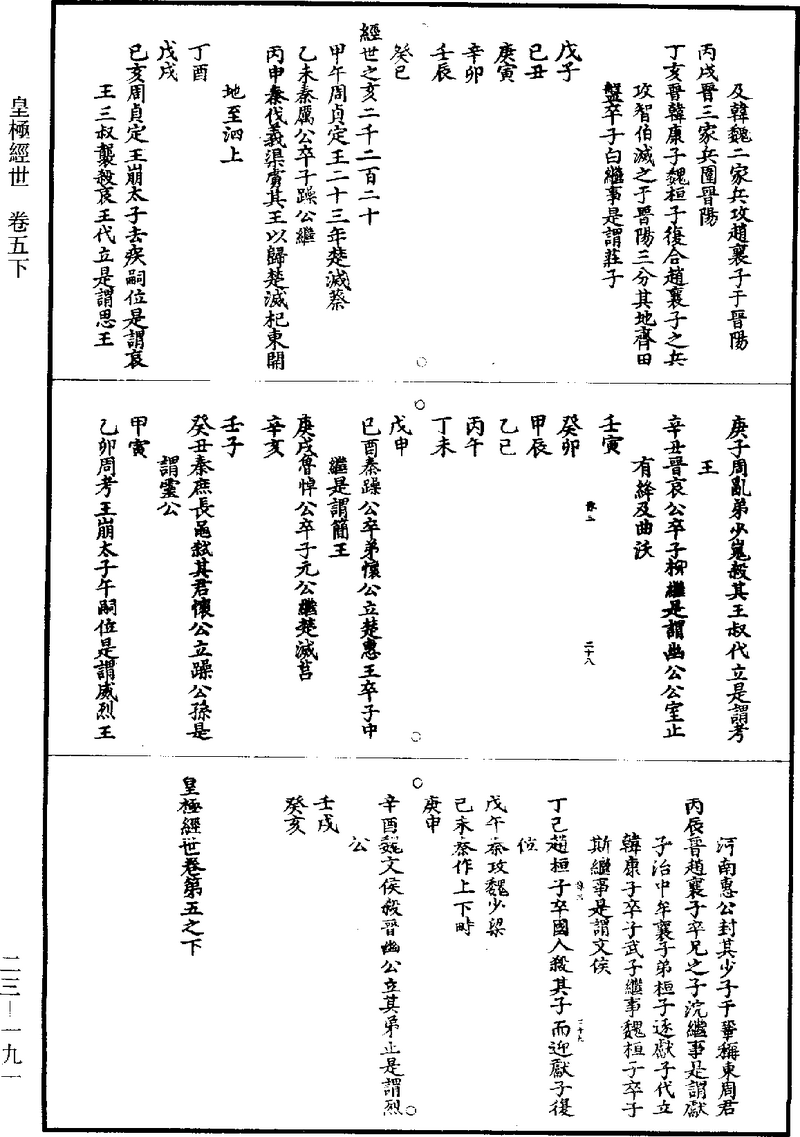 皇極經世　卷五下
及韓魏二家兵攻趙襄子于晉陽
丙戌晉三家兵圍晉陽
丁亥晉韓康子魏桓子復合趙襄子之兵
攻智伯滅之于晉陽三分其地齊田
盤卒子白繼事是謂莊子
戊子
己丑
庚寅
辛卯
壬辰
癸巳
經世之亥二千二百二十
甲午周貞定王二十三年楚滅蔡
乙未秦厲公卒子躁公繼
丙申秦伐義渠虜其王以歸楚滅杞東開
地至泗上
丁酉
戊戌
己亥周貞定王崩太子去疾嗣位是謂哀
王三叔襲殺哀王代立是謂思王
庚子周亂弟少嵬殺其王叔代立是謂考
王
辛丑晉哀公卒子柳繼是謂幽公公室止
有絳及曲沃
壬寅
二十八
癸卯
甲辰
乙巳
丙午
丁未
戊申
己酉秦躁公卒弟懷公立楚惠王卒子中
繼是謂簡王
庚戌魯悼公卒子元公繼楚滅莒
辛亥
壬子
癸丑秦庶長鼂弒其君懷公立躁公孫是
謂靈公
甲寅
乙卯周考王崩太子午嗣位是謂威烈王
河南惠公封其少子于鞏稱東周君
丙辰晉趙襄子卒兄之子浣繼事是謂獻
子治中牟襄子弟桓子逐獻子代立
韓康子卒子武子繼事魏桓子卒子
斯繼事是謂文侯
二十九
丁巳趙桓子卒國人殺其子而迎獻子復
位
戊午秦攻魏少梁
己未秦作上下畤
庚申
辛酉魏文侯殺晉幽公立其弟止是謂烈
公
壬戌
癸亥
皇極經世卷第五之下
二三—一九一